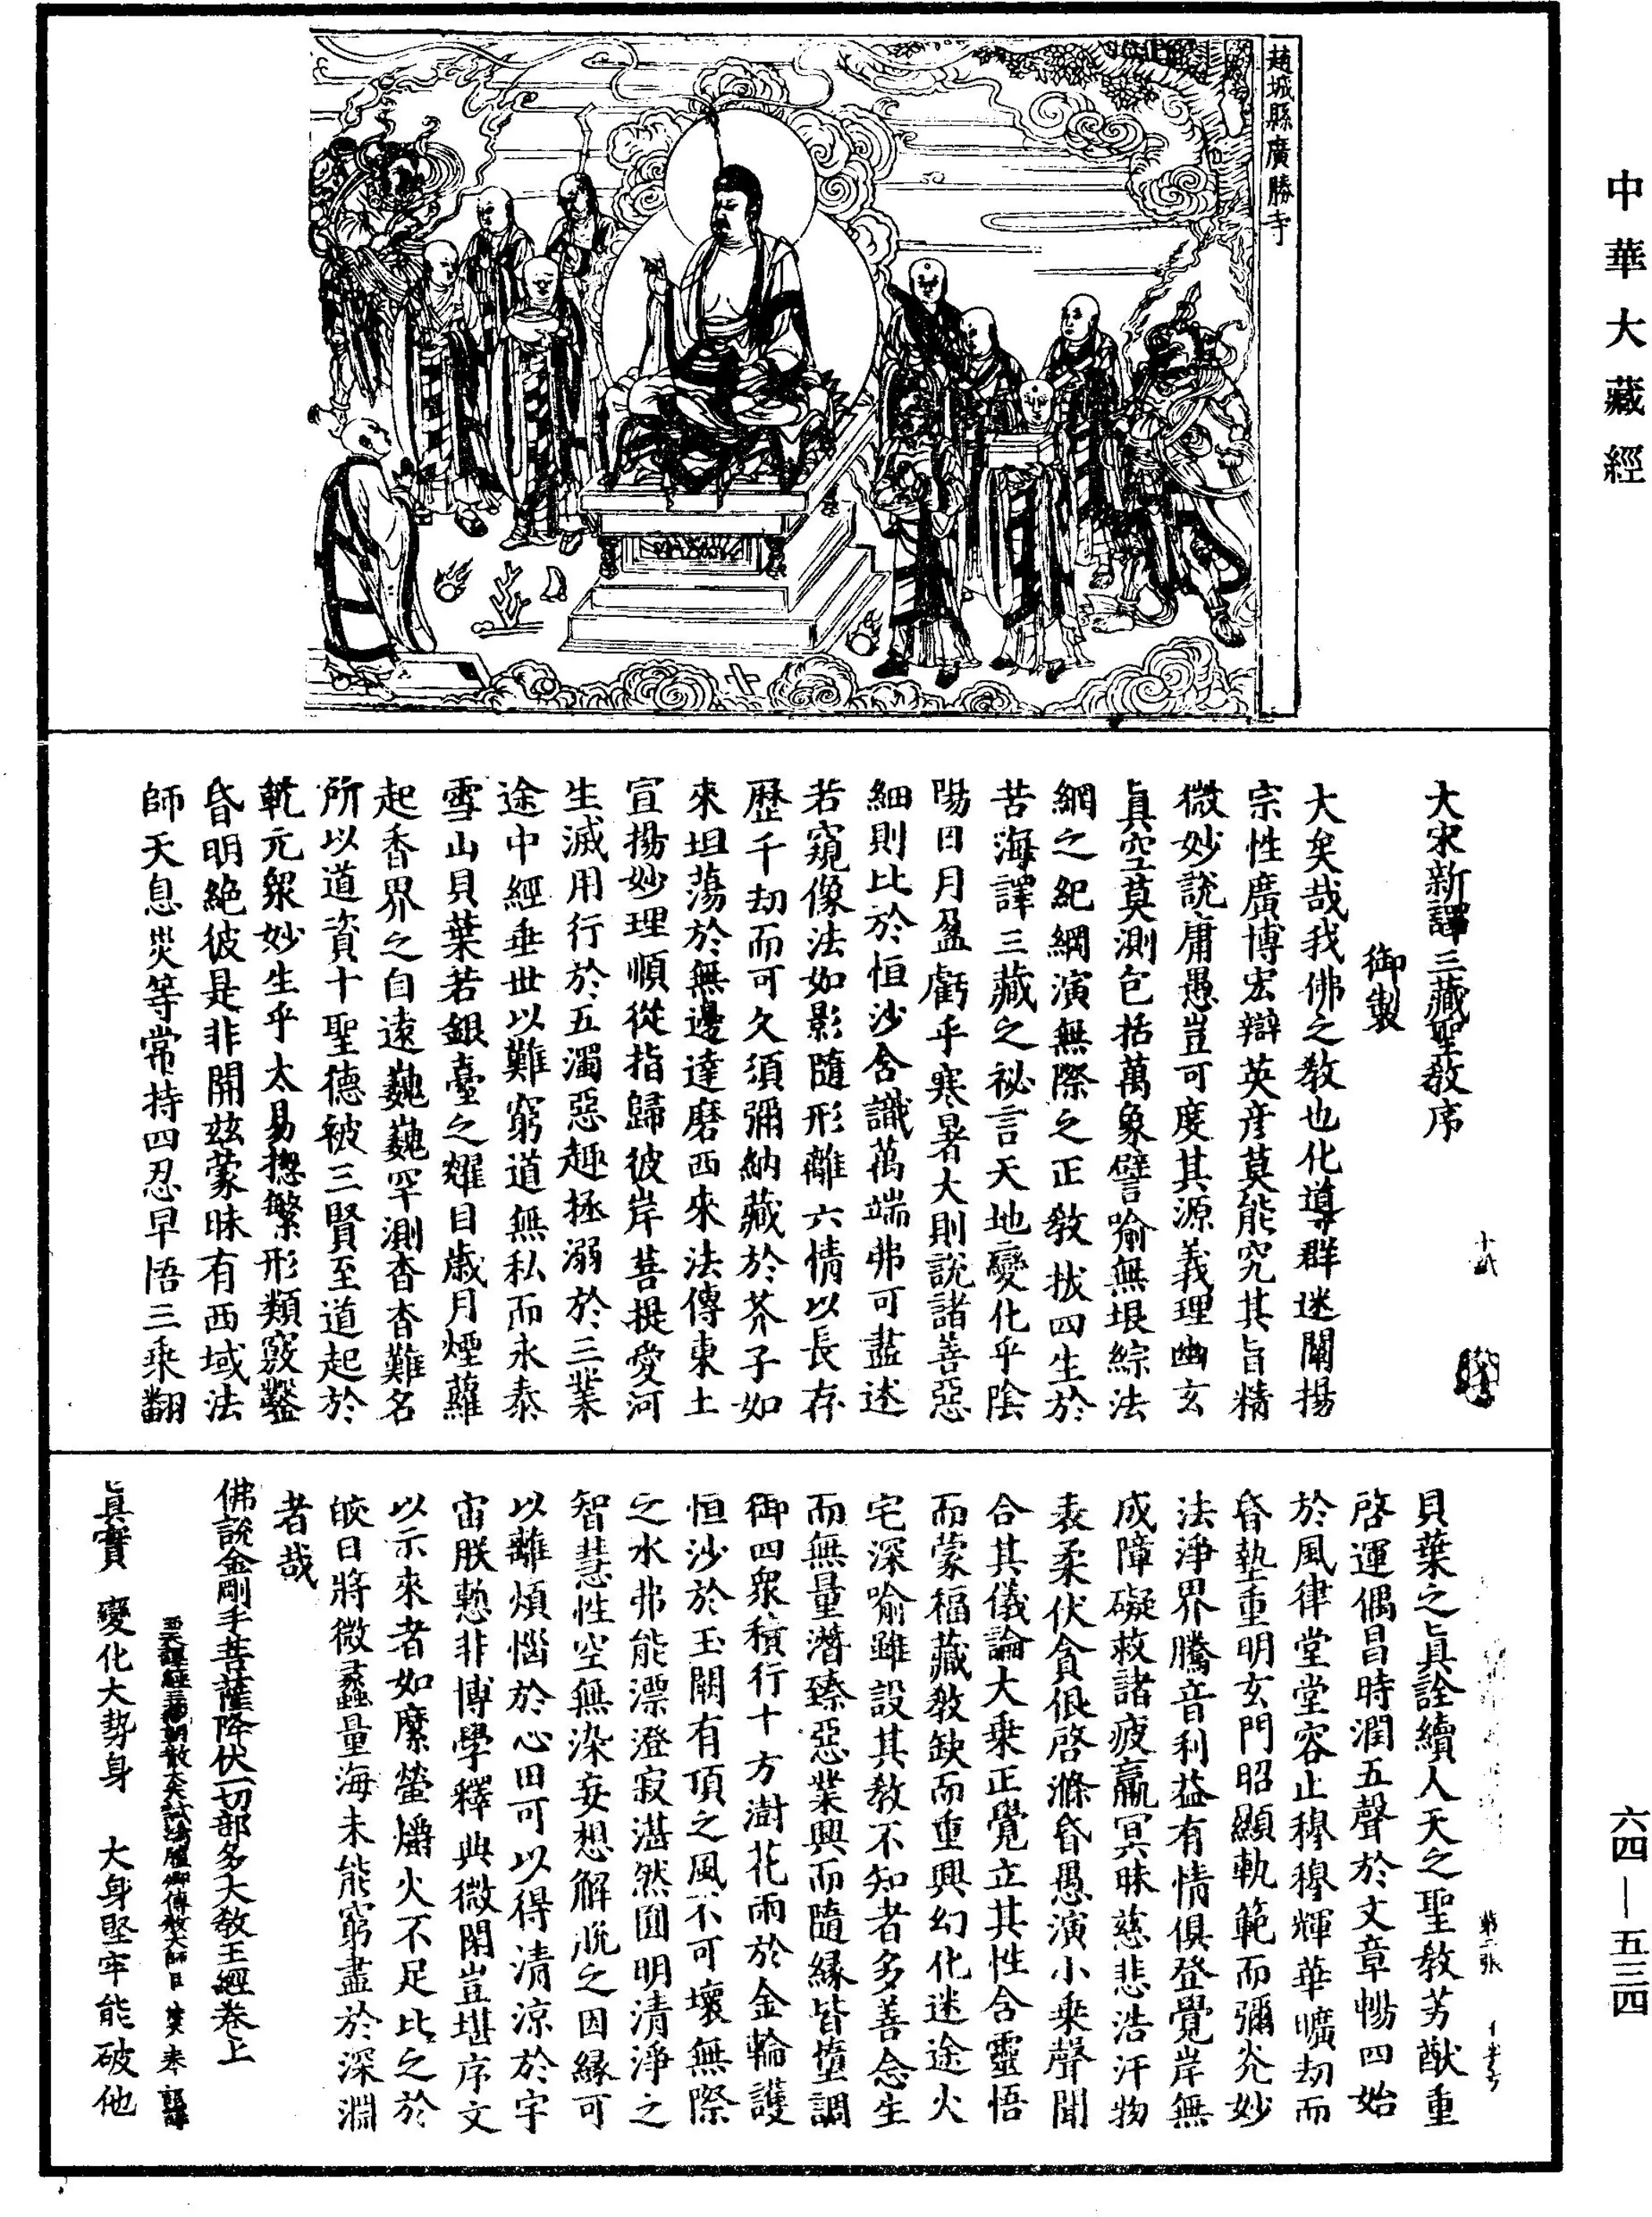 中華大藏經
趙城縣廣勝寺
大宋新譯三藏聖教序
御製
大矣哉我佛之教也化導群迷闡揚
宗性廣博宏辯英彥莫能究其旨精
微妙說庸愚豈可度其源義理幽玄
真空莫測包括萬象譬喻無垠綜法
網之紀綱演無際之正教拔四生於
苦海譯三藏之祕言天地變化乎陰
陽日月盈虧乎寒暑大則說諸善惡
細則比於恒沙含識萬端弗可盡述
若窺像法如影隨形離六情以長存
歷千劫而可久須彌納藏於芥子如
來坦蕩於無邊達磨西來法傳東土
宣揚妙理順從指歸彼岸菩提愛河
生滅用行於五濁惡趣拯溺於三業
途中經垂世以難窮道無私而永泰
雪山貝葉若銀臺之耀目歲月煙蘿
起香界之自遠巍巍罕測杳杳難名
所以道資十聖德被三賢至道起於
乾元眾妙生乎太易揔繁形類竅鑿
昏明絕彼是非開茲蒙昧有西域法
師天息災等常持四忍早悟三乘翻
貝葉之真詮續人天之聖教芳猷重
啓運偶昌時潤五聲於文章暢四始
於風律堂堂容止穆穆輝華曠劫而
昏墊重明玄門昭顯軌範而彌光妙
法淨界騰音利益有情俱登覺岸無
成障礙救諸疲羸冥昧慈悲浩汗物
表柔伏貪佷啓滌昏愚演小乘聲聞
合其儀論大乘正覺立其性含靈悟
而蒙福藏教缺而重興幻化迷途火
宅深喻雖設其教不知者多善念生
而無量潛臻惡業興而隨緣皆墮調
御四眾積行十方澍花雨於金輪護
恒沙於玉闕有頂之風不可壞無際
之水弗能漂澄寂湛然圓明清淨之
智慧性空無染妄想解脫之因緣可
以離煩惱於心田可以得清涼於宇
宙朕慙非博學釋典微閑豈堪序文
以示來者如縻螢爝火不足比之於
皎日將微蠡量海未能窮盡於深淵
者哉
佛說金剛手菩薩降伏一切部多大教王經卷上
真實 變化大勢身 大身堅牢能破他
六四—五三四